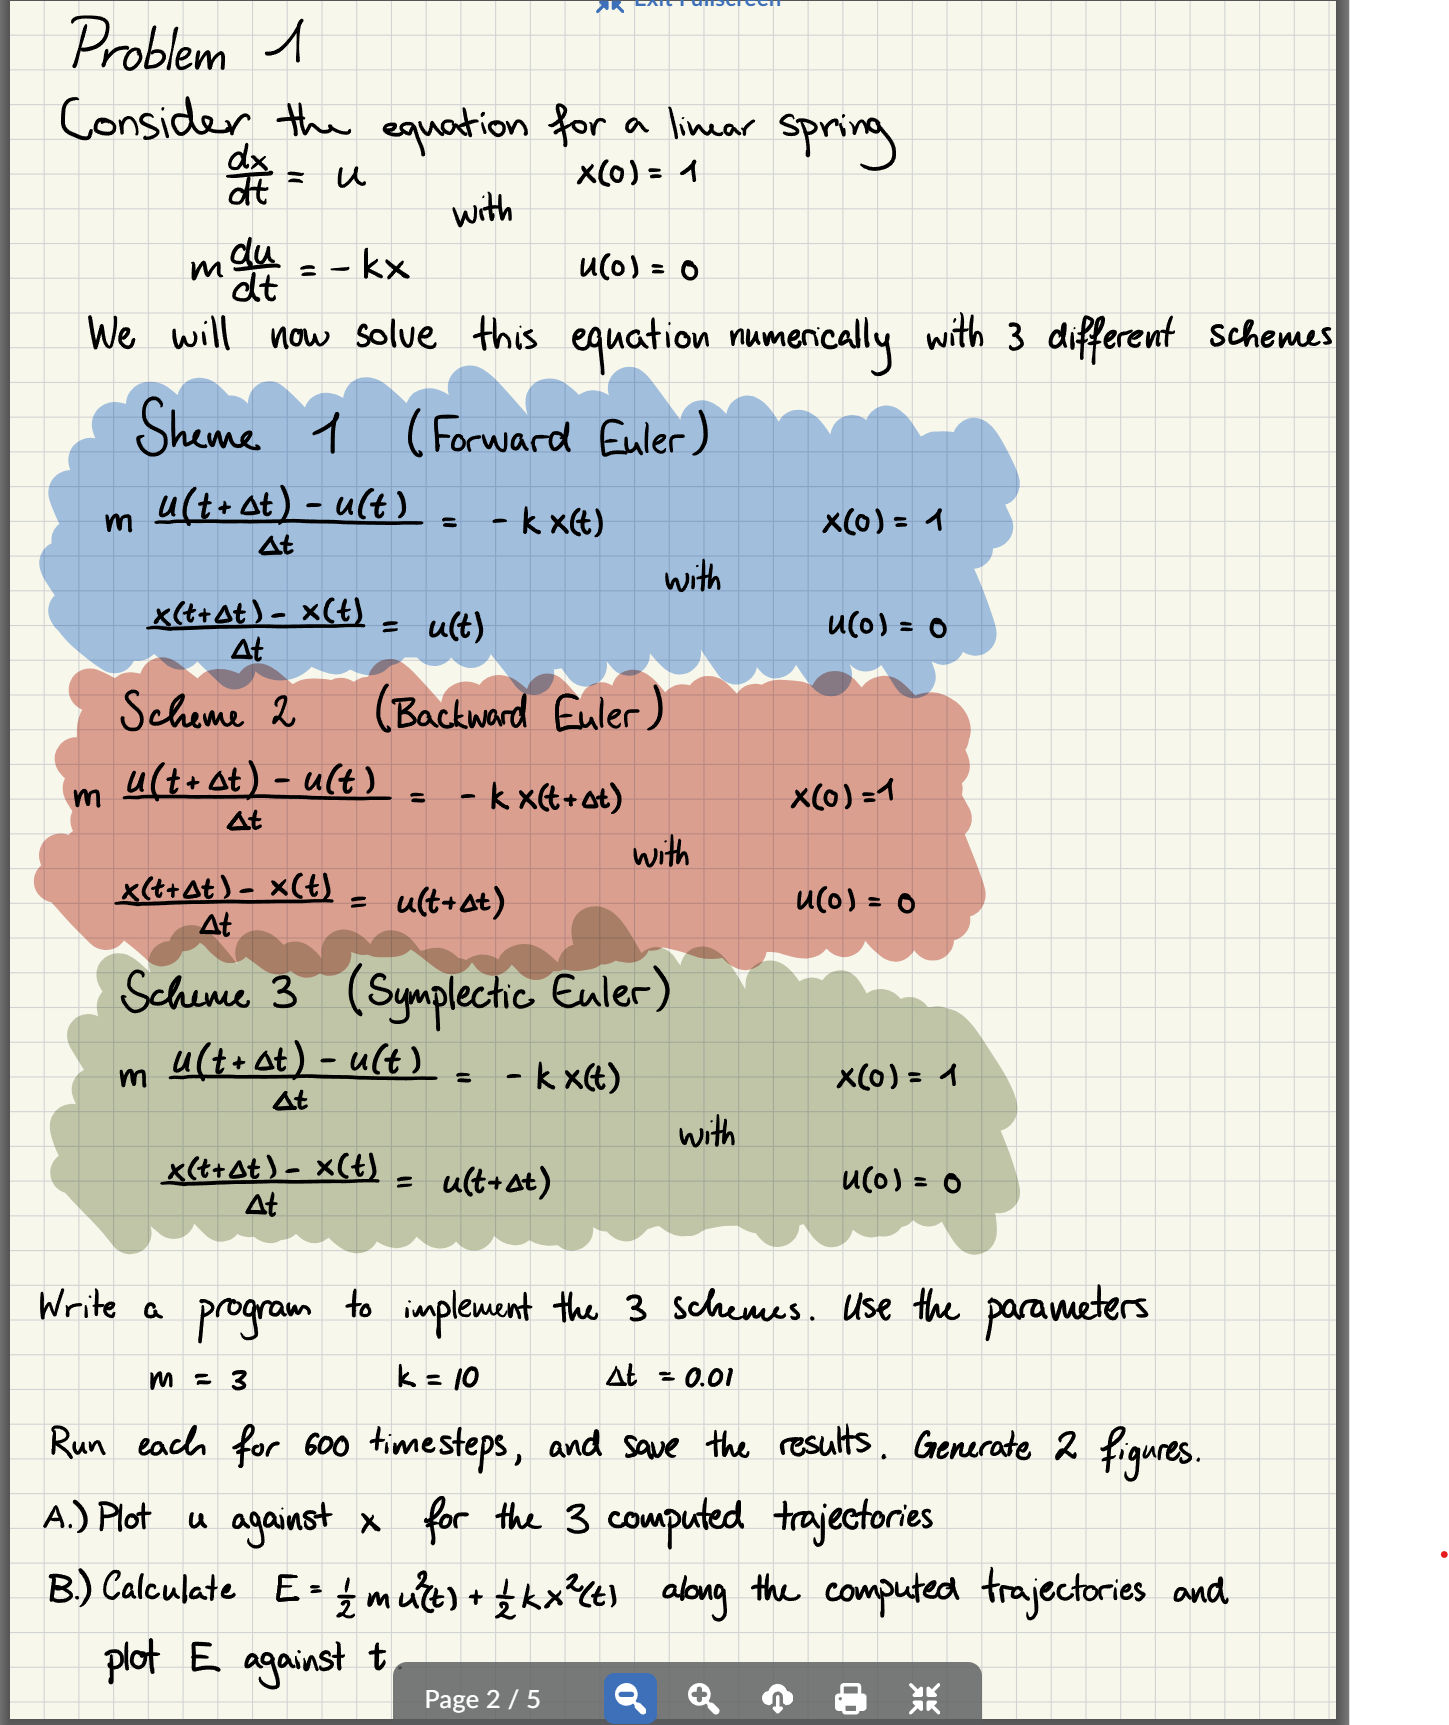 Exit Fullscreen
Problem 1
Consider the equation for a linear spring
dx/dt = u with x(0) = 1
m du/dt = - kx u(0) = 0
We will now solve this equation numerically with 3 different schemes
Sheme 1 (Forward Euler)
m (u(t+Δt) - u(t))/Δt = - k x(t) x(0) = 1
with
(x(t+Δt) - x(t))/Δt = u(t) u(0) = 0
Scheme 2 (Backward Euler)
m (u(t+Δt) - u(t))/Δt = - k x(t+Δt) x(0) = 1
with
(x(t+Δt) - x(t))/Δt = u(t+Δt) u(0) = 0
Scheme 3 (Symplectic Euler)
m (u(t+Δt) - u(t))/Δt = - k x(t) x(0) = 1
with
(x(t+Δt) - x(t))/Δt = u(t+Δt) u(0) = 0
Write a program to implement the 3 schemes. Use the parameters
m = 3 k = 10 Δt = 0.01
Run each for 600 timesteps, and save the results. Generate 2 figures.
A.) Plot u against x for the 3 computed trajectories
B.) Calculate E = 1/2 m u²(t) + 1/2 k x²(t) along the computed trajectories and
plot E against t
Page 2 / 5